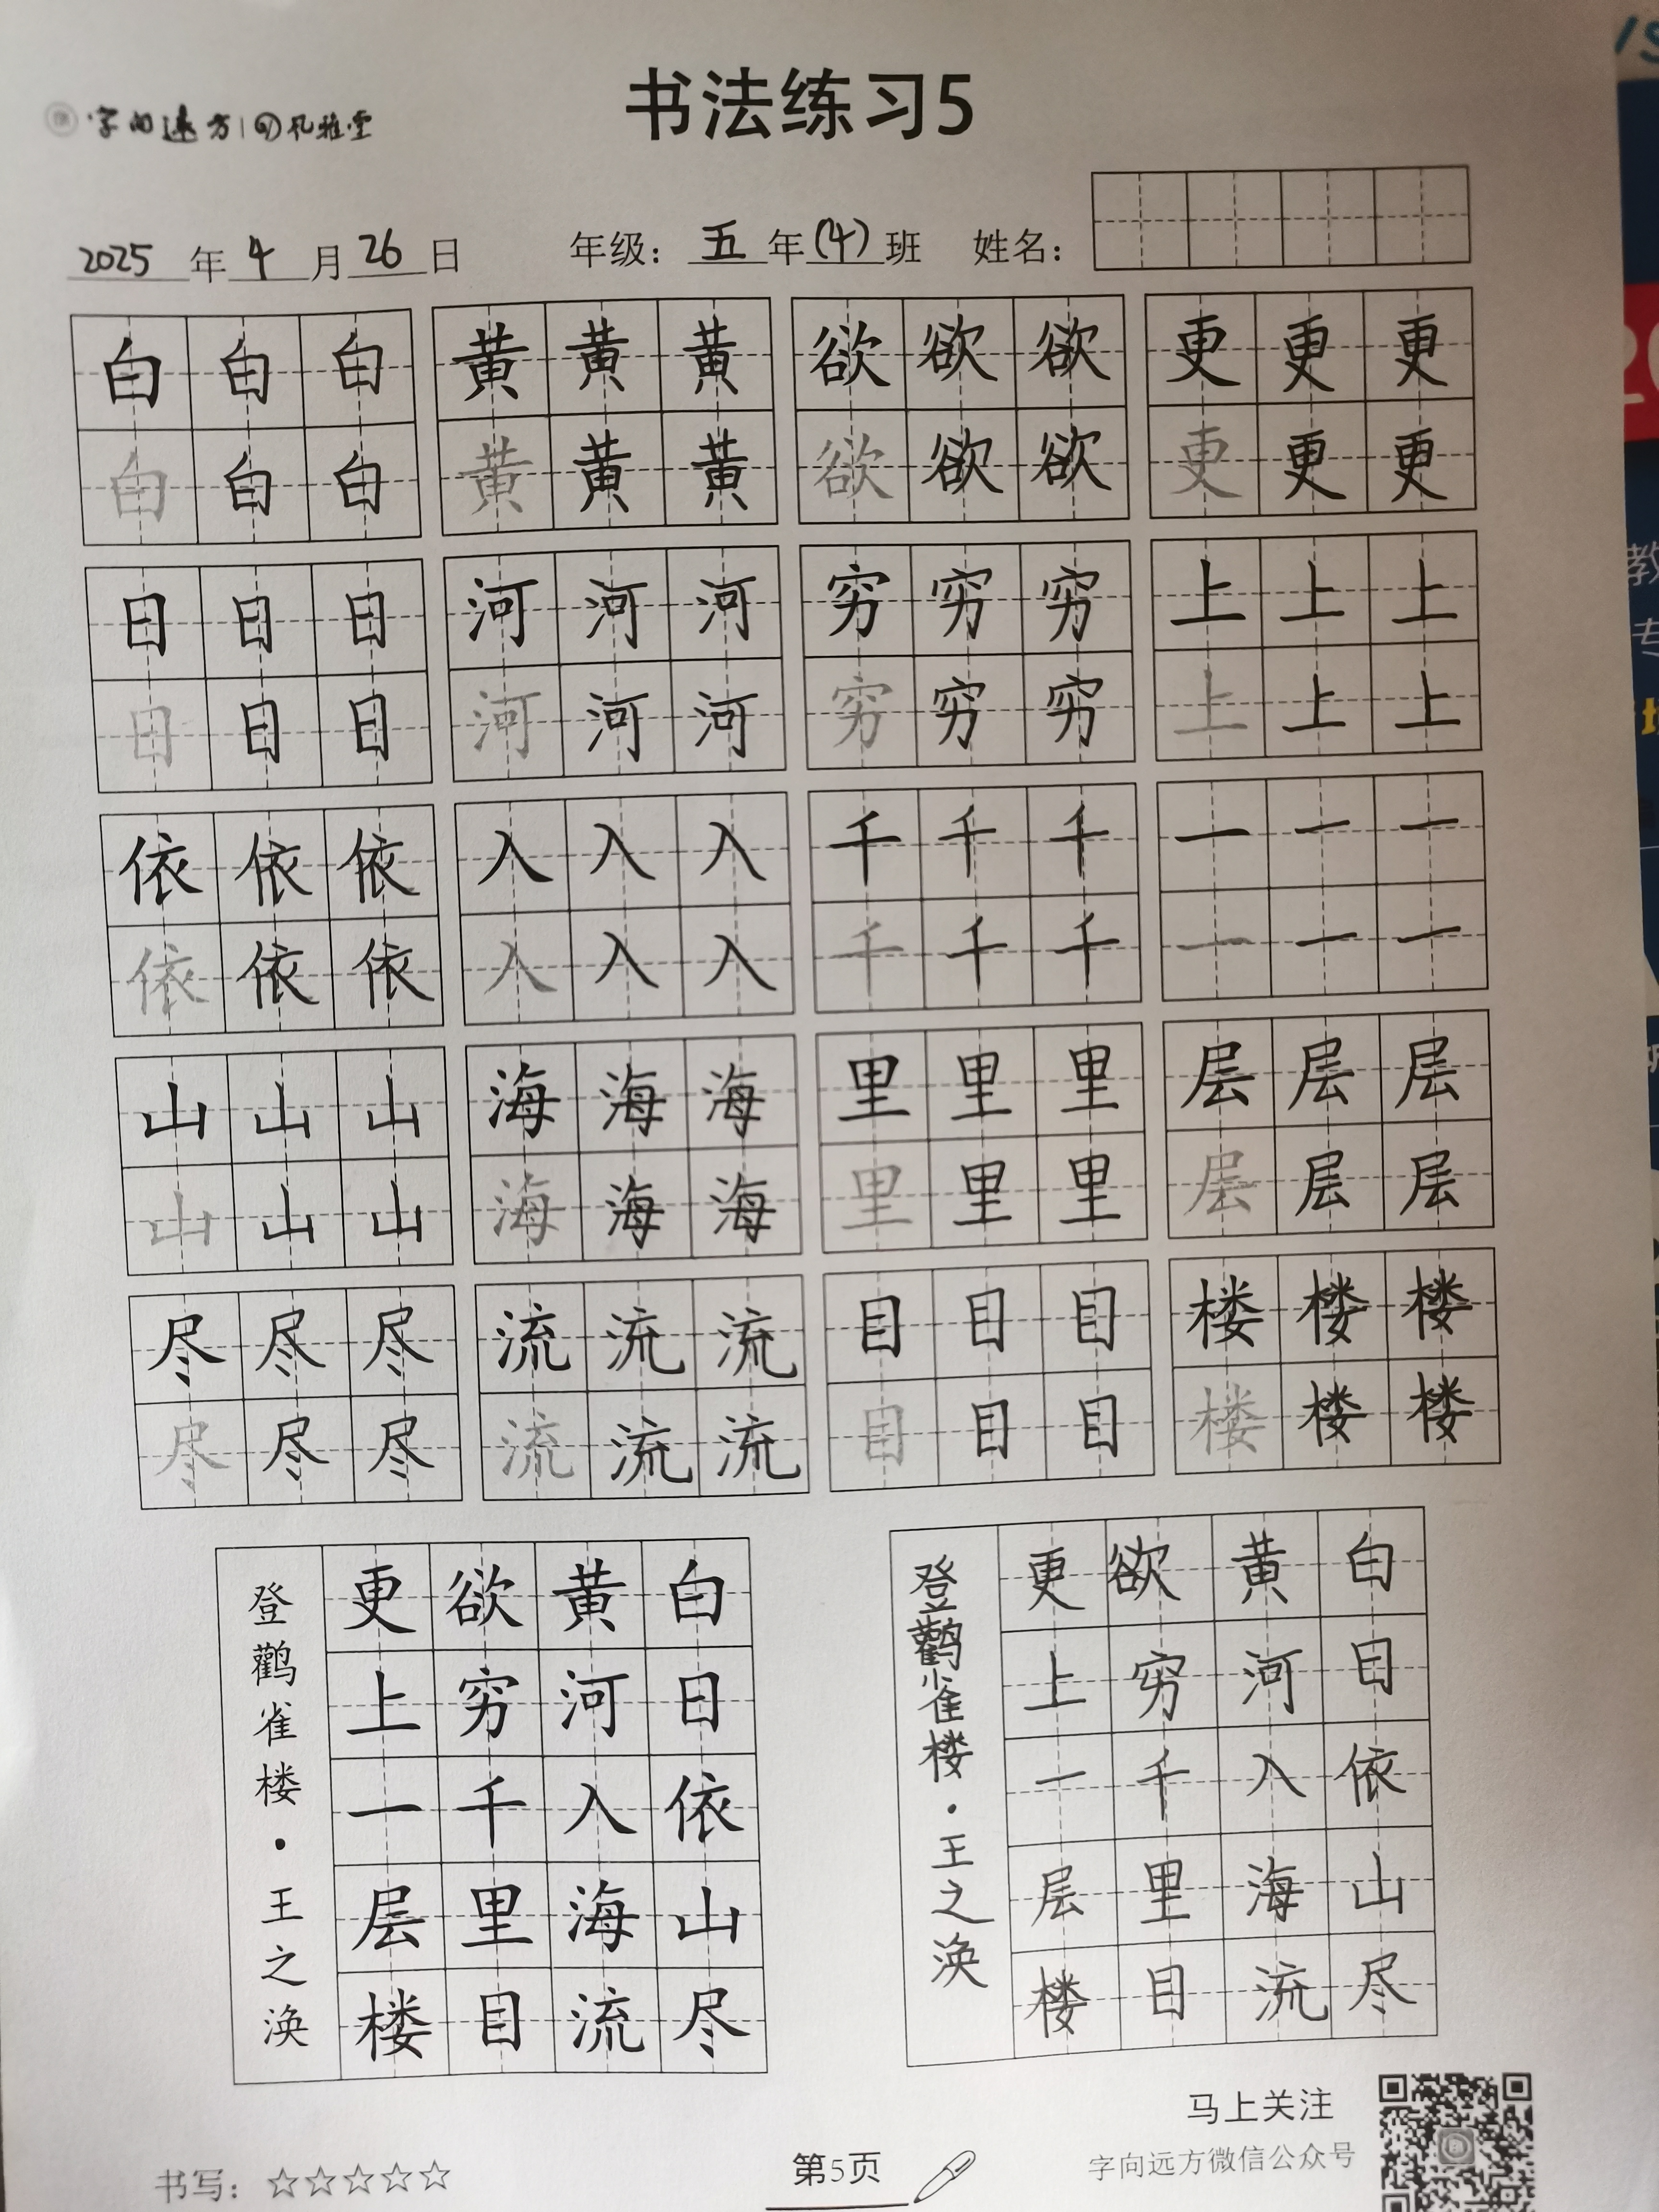 字向远方
书法练习5
2025年4月26日 年级：五年(4)班 姓名：
白白白 黄黄黄 欲欲欲 更更更
白白白 黄黄黄 欲欲欲 更更更
日日日 河河河 穷穷穷 上上上
日日目 河河河 穷穷穷 上上上
依依依 入入入 千千千 一一一
依依依 入入入 千千千 一一一
山山山 海海海 里里里 层层层
山山山 海海海 里里里 层层层
尽尽尽 流流流 目目目 楼楼楼
尽尽尽 流流流 目目目 楼楼楼
白日依山尽
黄河入海流
欲穷千里目
更上一层楼
登鹳雀楼·王之涣
白目依山尽
黄河入海流
欲穷千里目
更上一层楼
登鹳雀楼·王之涣
马上关注
字向远方微信公众号
书写：☆☆☆☆☆
第5页